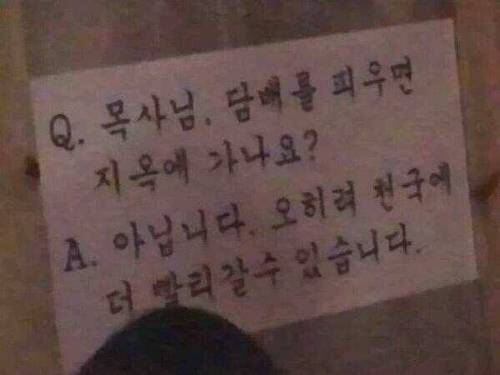 Q. 목사님, 담배를 피우면
지옥에 가나요?
A. 아닙니다. 오히려 천국에
더 빨리갈수 있습니다.